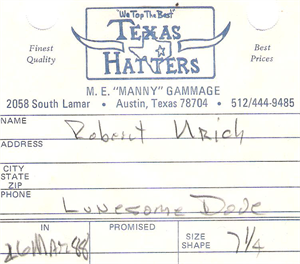 "We Top The Best"
Finest Quality
TEXAS HATTERS
Best Prices
M. E. "MANNY" GAMMAGE
2058 South Lamar • Austin, Texas 78704 • 512/444-9485
NAME Robert Urich
ADDRESS
CITY
STATE
ZIP
PHONE Lonesome Dove
IN PROMISED SIZE SHAPE 7 1/4
26 Mar 88